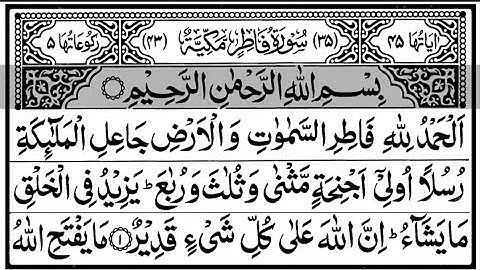 اٰیاتها ٤٥ (٣٥) سُوْرَةُ فَاطِرٍ مَكِّیَّةٌ (٤٣) رکوعاتها ٥
بِسْمِ اللّٰهِ الرَّحْمٰنِ الرَّحِیْمِ
اَلْحَمْدُ لِلّٰهِ فَاطِرِ السَّمٰوٰتِ وَ الْاَرْضِ جَاعِلِ الْمَلٰٓىِٕكَةِ
رُسُلًا اُولِیْۤ اَجْنِحَةٍ مَّثْنٰی وَ ثُلٰثَ وَ رُبٰعَؕ یَزِیْدُ فِی الْخَلْقِ
مَا یَشَآءُؕ اِنَّ اللّٰهَ عَلٰی كُلِّ شَیْءٍ قَدِیْرٌ ۝١ مَا یَفْتَحِ اللّٰهُ